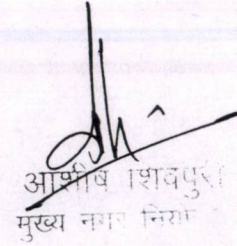 आशीष शिवपुरी
मुख्य नगर